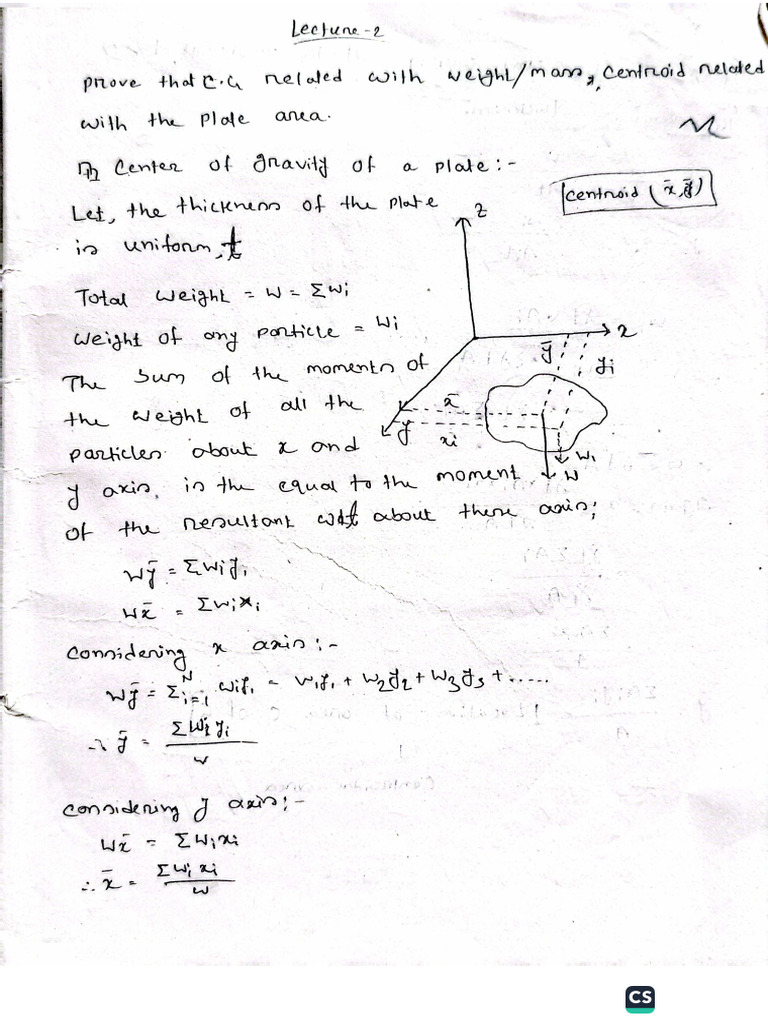 Lecture-2
Prove that C.G related with weight/mass, centroid related
with the plate area.
Center of gravity of a plate:-
Centroid (x̄,ȳ)
Let, the thickness of the plate
is uniform, t
z
Total weight = W = ΣWi
Weight of any particle = Wi
x
ȳ
yi
The sum of the moments of
the weight of all the
x̄
y
xi
particles about x and
W1
y axis, is the equal to the moment
W
of the resultant about there axis;
Wȳ = ΣWiyi
Wx̄ = ΣWixi
Considering x axis:-
Wȳ = Σ_{i=1}^{N} Wiyi = W1y1 + W2y2 + W3y3 + .....
∴ ȳ = ΣWiyi / W
Considering y axis:-
Wx̄ = ΣWixi
∴ x̄ = ΣWixi / W
CS